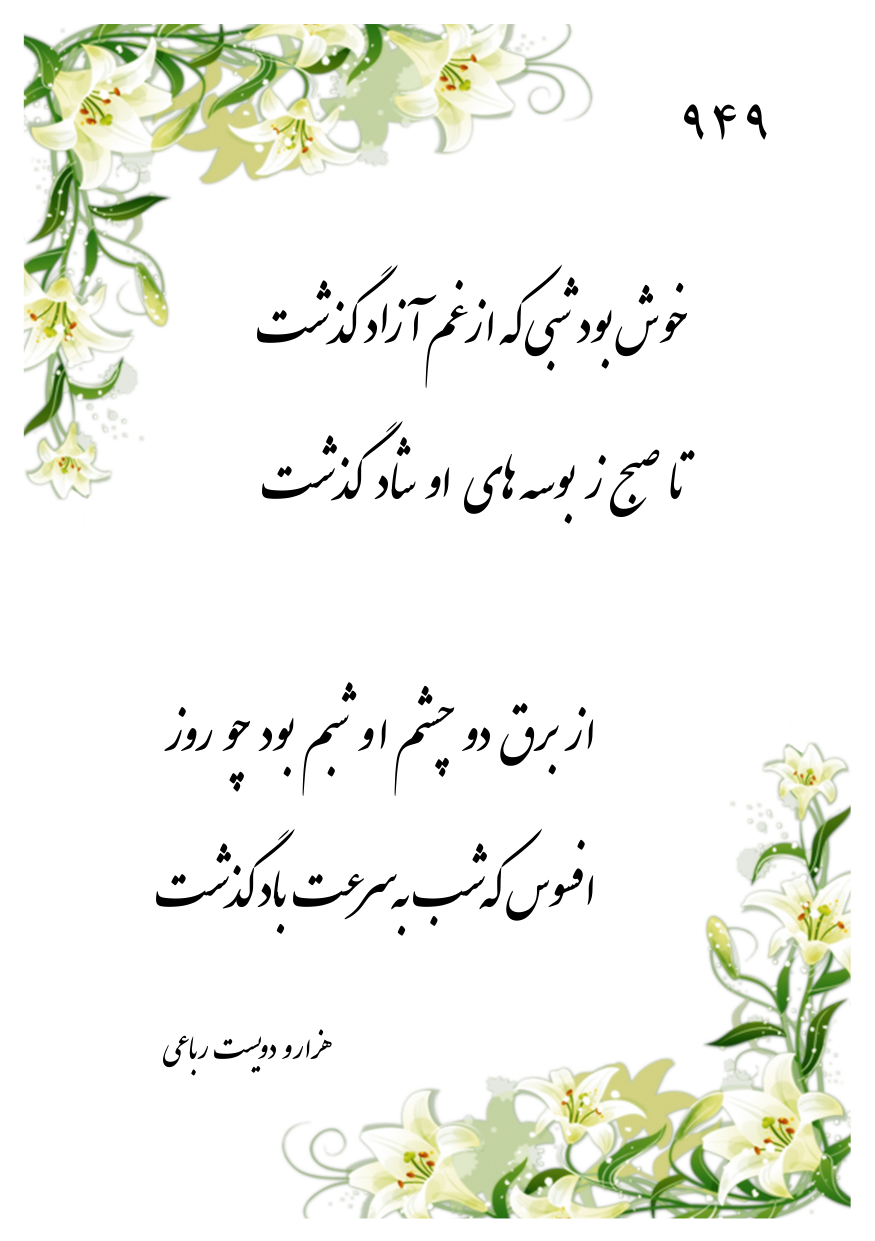 ۹۴۹
خوش بود شبی که از غم آزاد گذشت
تا صبح ز بوسه های او شاد گذشت
از برق دو چشم او شبم بود چو روز
افسوس که شب به سرعت باد گذشت
هزار و دویست رباعی